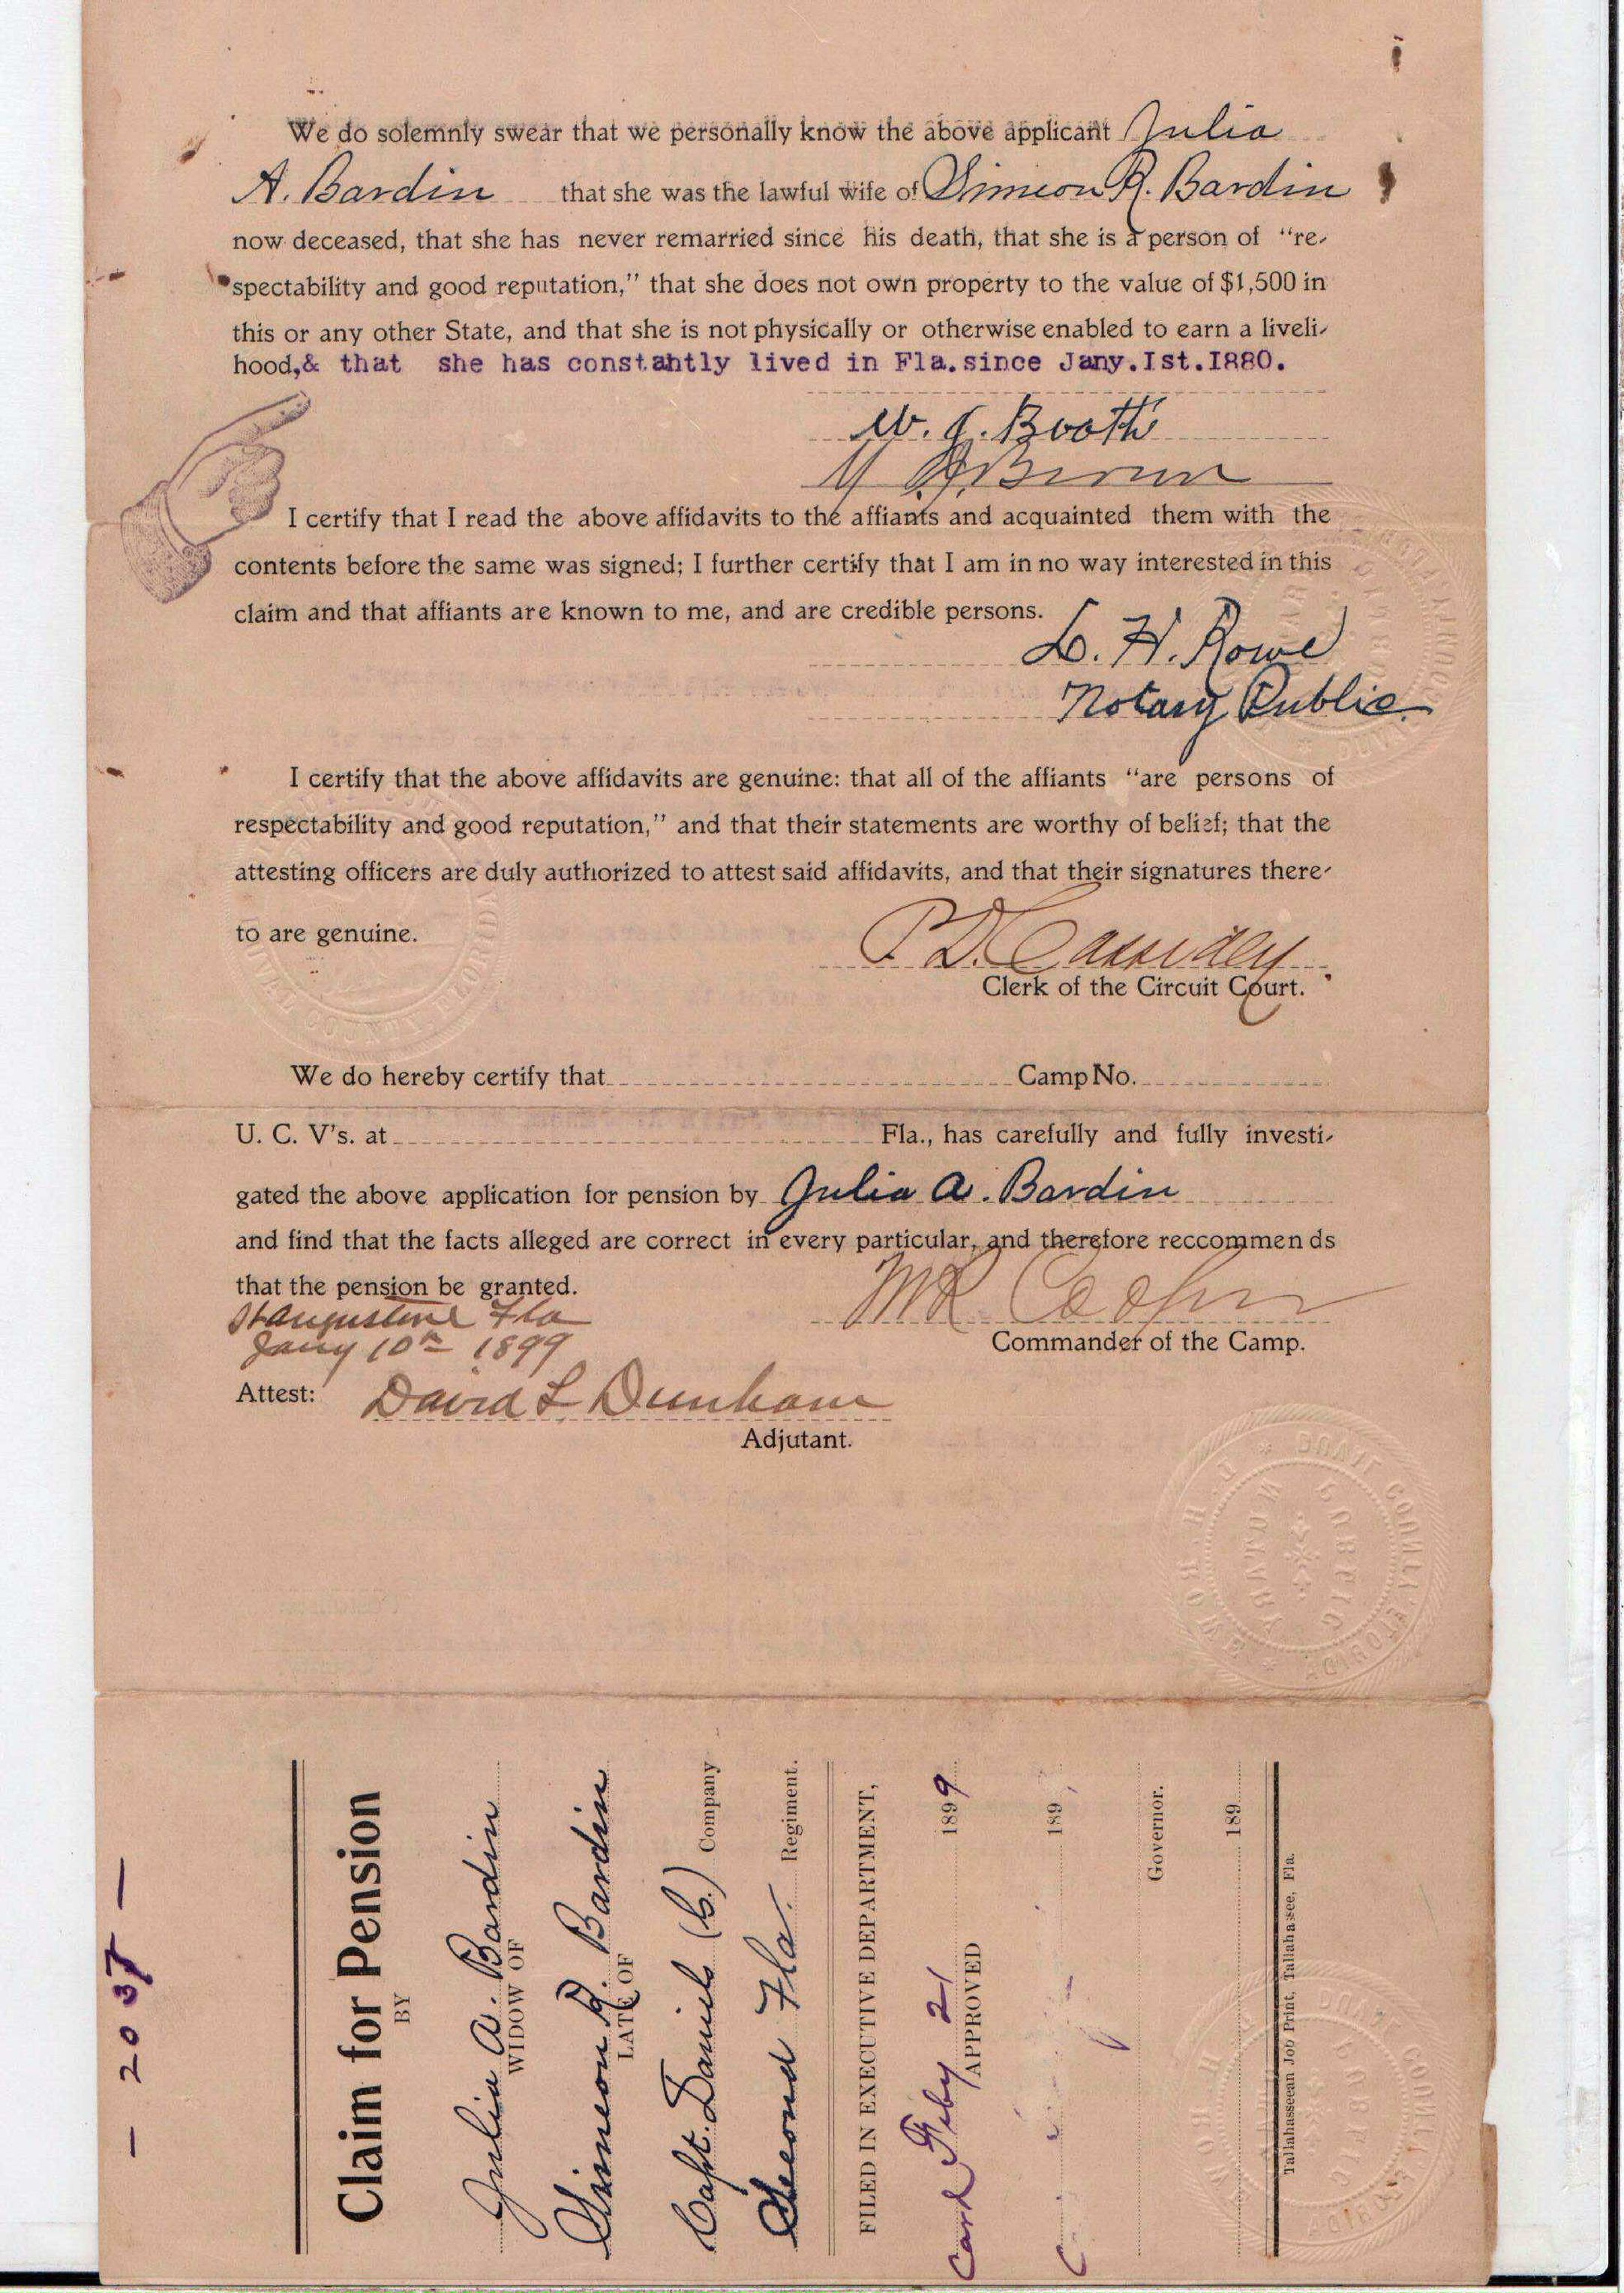 We do solemnly swear that we personally know the above applicant Julia
A. Bardin that she was the lawful wife of Simeon R. Bardin
now deceased, that she has never remarried since his death, that she is a person of "re-
spectability and good reputation," that she does not own property to the value of $1,500 in
this or any other State, and that she is not physically or otherwise enabled to earn a liveli-
hood,& that she has constantly lived in Fla.since Jany.Ist.I880.
W. J. Booth
I certify that I read the above affidavits to the affiants and acquainted them with the
contents before the same was signed; I further certify that I am in no way interested in this
claim and that affiants are known to me, and are credible persons.
L. H. Rowe
Notary Public.
I certify that the above affidavits are genuine: that all of the affiants "are persons of
respectability and good reputation," and that their statements are worthy of belief; that the
attesting officers are duly authorized to attest said affidavits, and that their signatures there-
to are genuine.
P. D. Cassidey
Clerk of the Circuit Court.
We do hereby certify that Camp No.
U. C. V's. at Fla., has carefully and fully investi-
gated the above application for pension by Julia A. Bardin
and find that the facts alleged are correct in every particular, and therefore reccommen ds
that the pension be granted.
St Augustine Fla
Jany 10th 1899
M R Cooper
Commander of the Camp.
Attest: David L Dunham
Adjutant.
- 2037 -
Claim for Pension
BY
Julia A. Bardin
WIDOW OF
Simeon R. Bardin
LATE OF
Capt. Daniels (C.) Company
Second Fla. Regiment.
FILED IN EXECUTIVE DEPARTMENT,
Card Feby 21 1899
APPROVED
189
Governor.
189
Tallahasseean Job Print, Tallahassee, Fla.